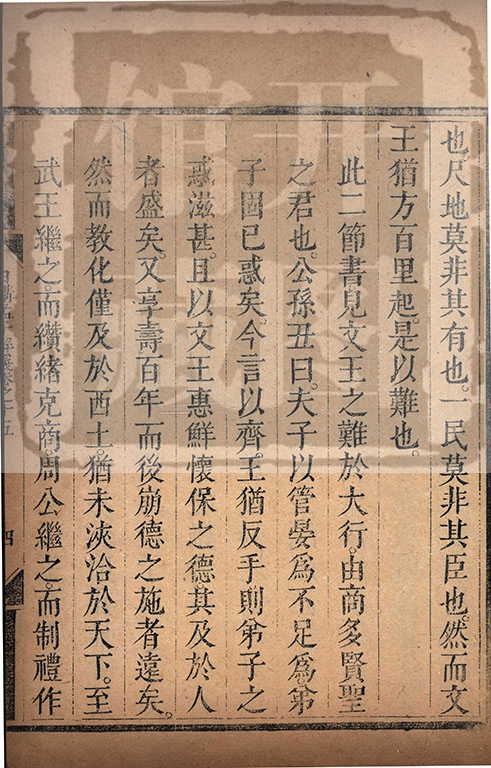 也尺地莫非其有也。一民莫非其臣也。然而文
王猶方百里起。是以難也。
此二節書。見文王之難於大行。由商多賢聖
之君也。公孫丑曰。夫子以管晏爲不足爲。弟
子固已惑矣。今言以齊。王猶反手。則弟子之
惑滋甚。且以文王惠鮮懷保之德。其及於人
者盛矣。又享壽百年而後崩。德之施者遠矣。
然而教化僅及於西土。猶未浹洽於天下。至
武王繼之。而纘緒克商。周公繼之。而制禮作
日講四書解義卷之十五
四